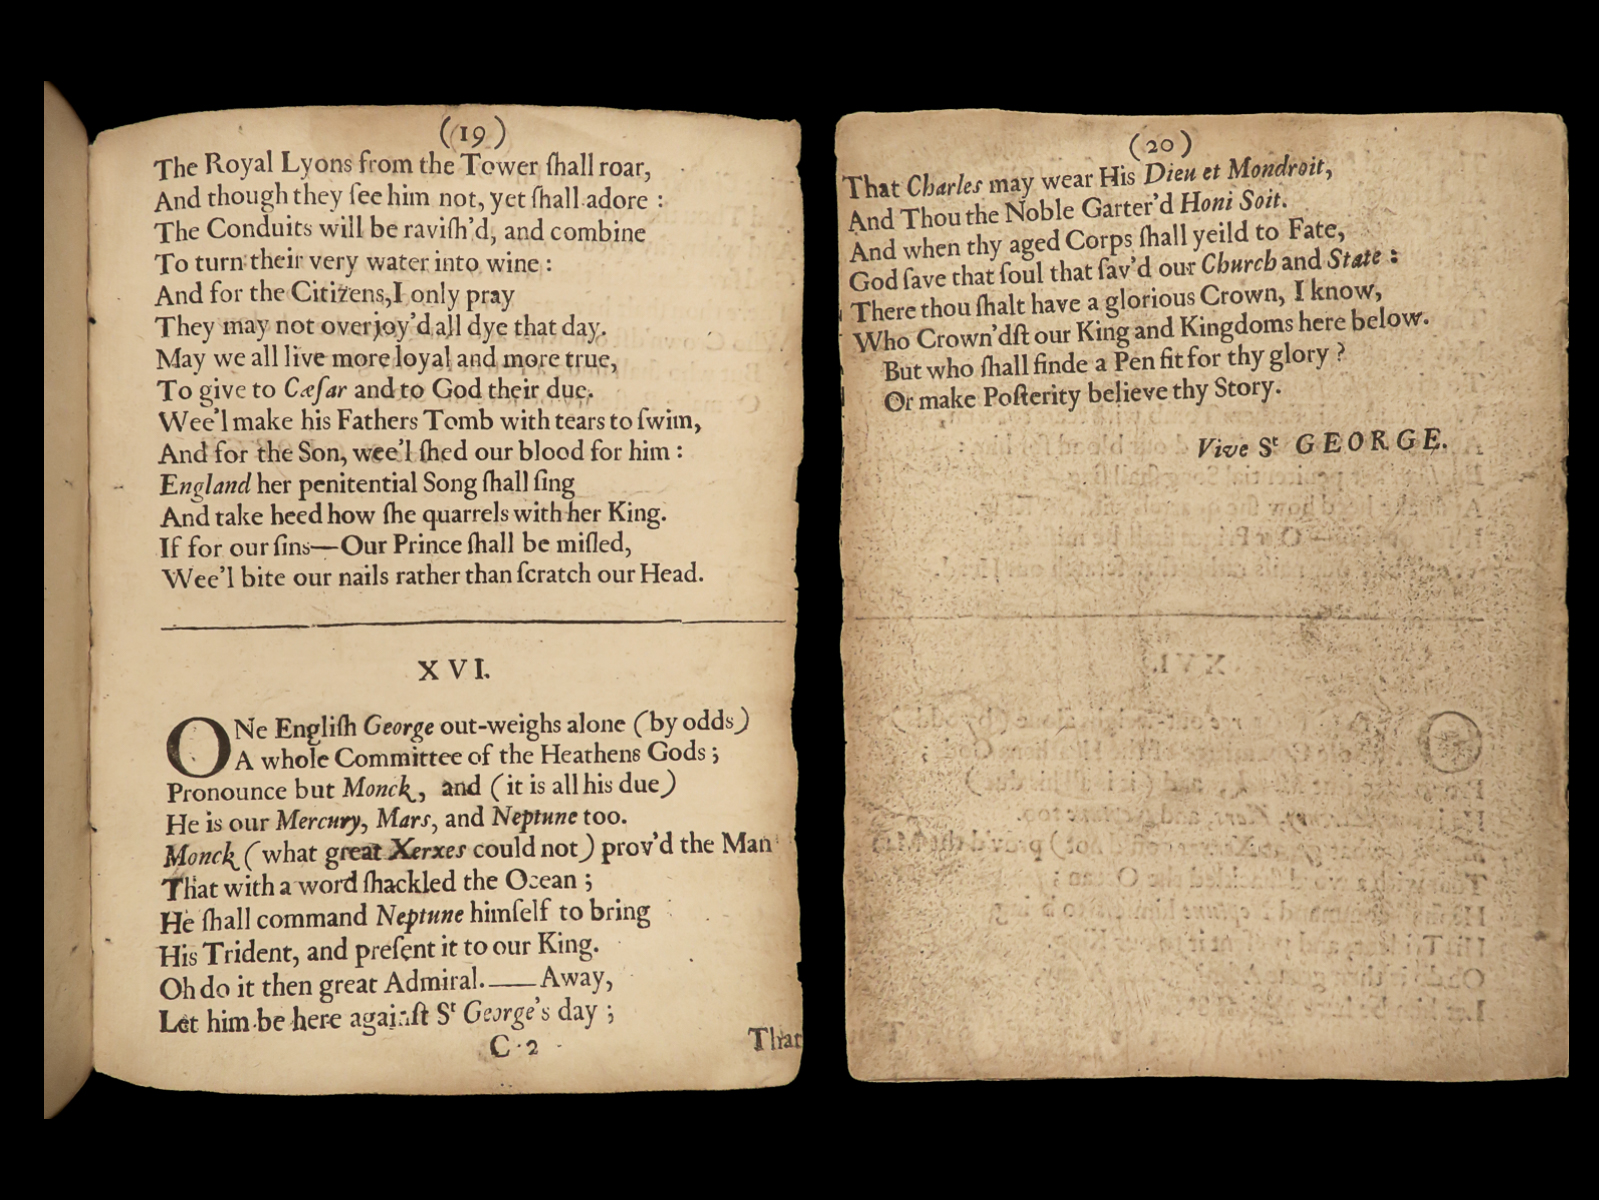 (19)
The Royal Lyons from the Tower ſhall roar,
And though they ſee him not, yet ſhall adore :
The Conduits will be raviſh'd, and combine
To turn their very water into wine :
And for the Citizens, I only pray
They may not overjoy'd all dye that day.
May we all live more loyal and more true,
To give to Cæſar and to God their due.
Wee'l make his Fathers Tomb with tears to ſwim,
And for the Son, wee'l ſhed our blood for him :
England her penitential Song ſhall ſing
And take heed how ſhe quarrels with her King.
If for our ſins—Our Prince ſhall be miſled,
Wee'l bite our nails rather than ſcratch our Head.
XVI.
ONe Engliſh George out-weighs alone (by odds)
A whole Committee of the Heathens Gods ;
Pronounce but Monck, and (it is all his due)
He is our Mercury, Mars, and Neptune too.
Monck (what great Xerxes could not) prov'd the Man
That with a word ſhackled the Ocean ;
He ſhall command Neptune himſelf to bring
His Trident, and preſent it to our King.
Oh do it then great Admiral.——Away,
Let him be here againſt St George's day ;
C 2
That
(20)
That Charles may wear His Dieu et Mondroit,
And Thou the Noble Garter'd Honi Soit.
And when thy aged Corps ſhall yeild to Fate,
God ſave that ſoul that ſav'd our Church and State :
There thou ſhalt have a glorious Crown, I know,
Who Crown'dſt our King and Kingdoms here below.
But who ſhall finde a Pen fit for thy glory ?
Or make Poſterity believe thy Story.
Vive St GEORGE.